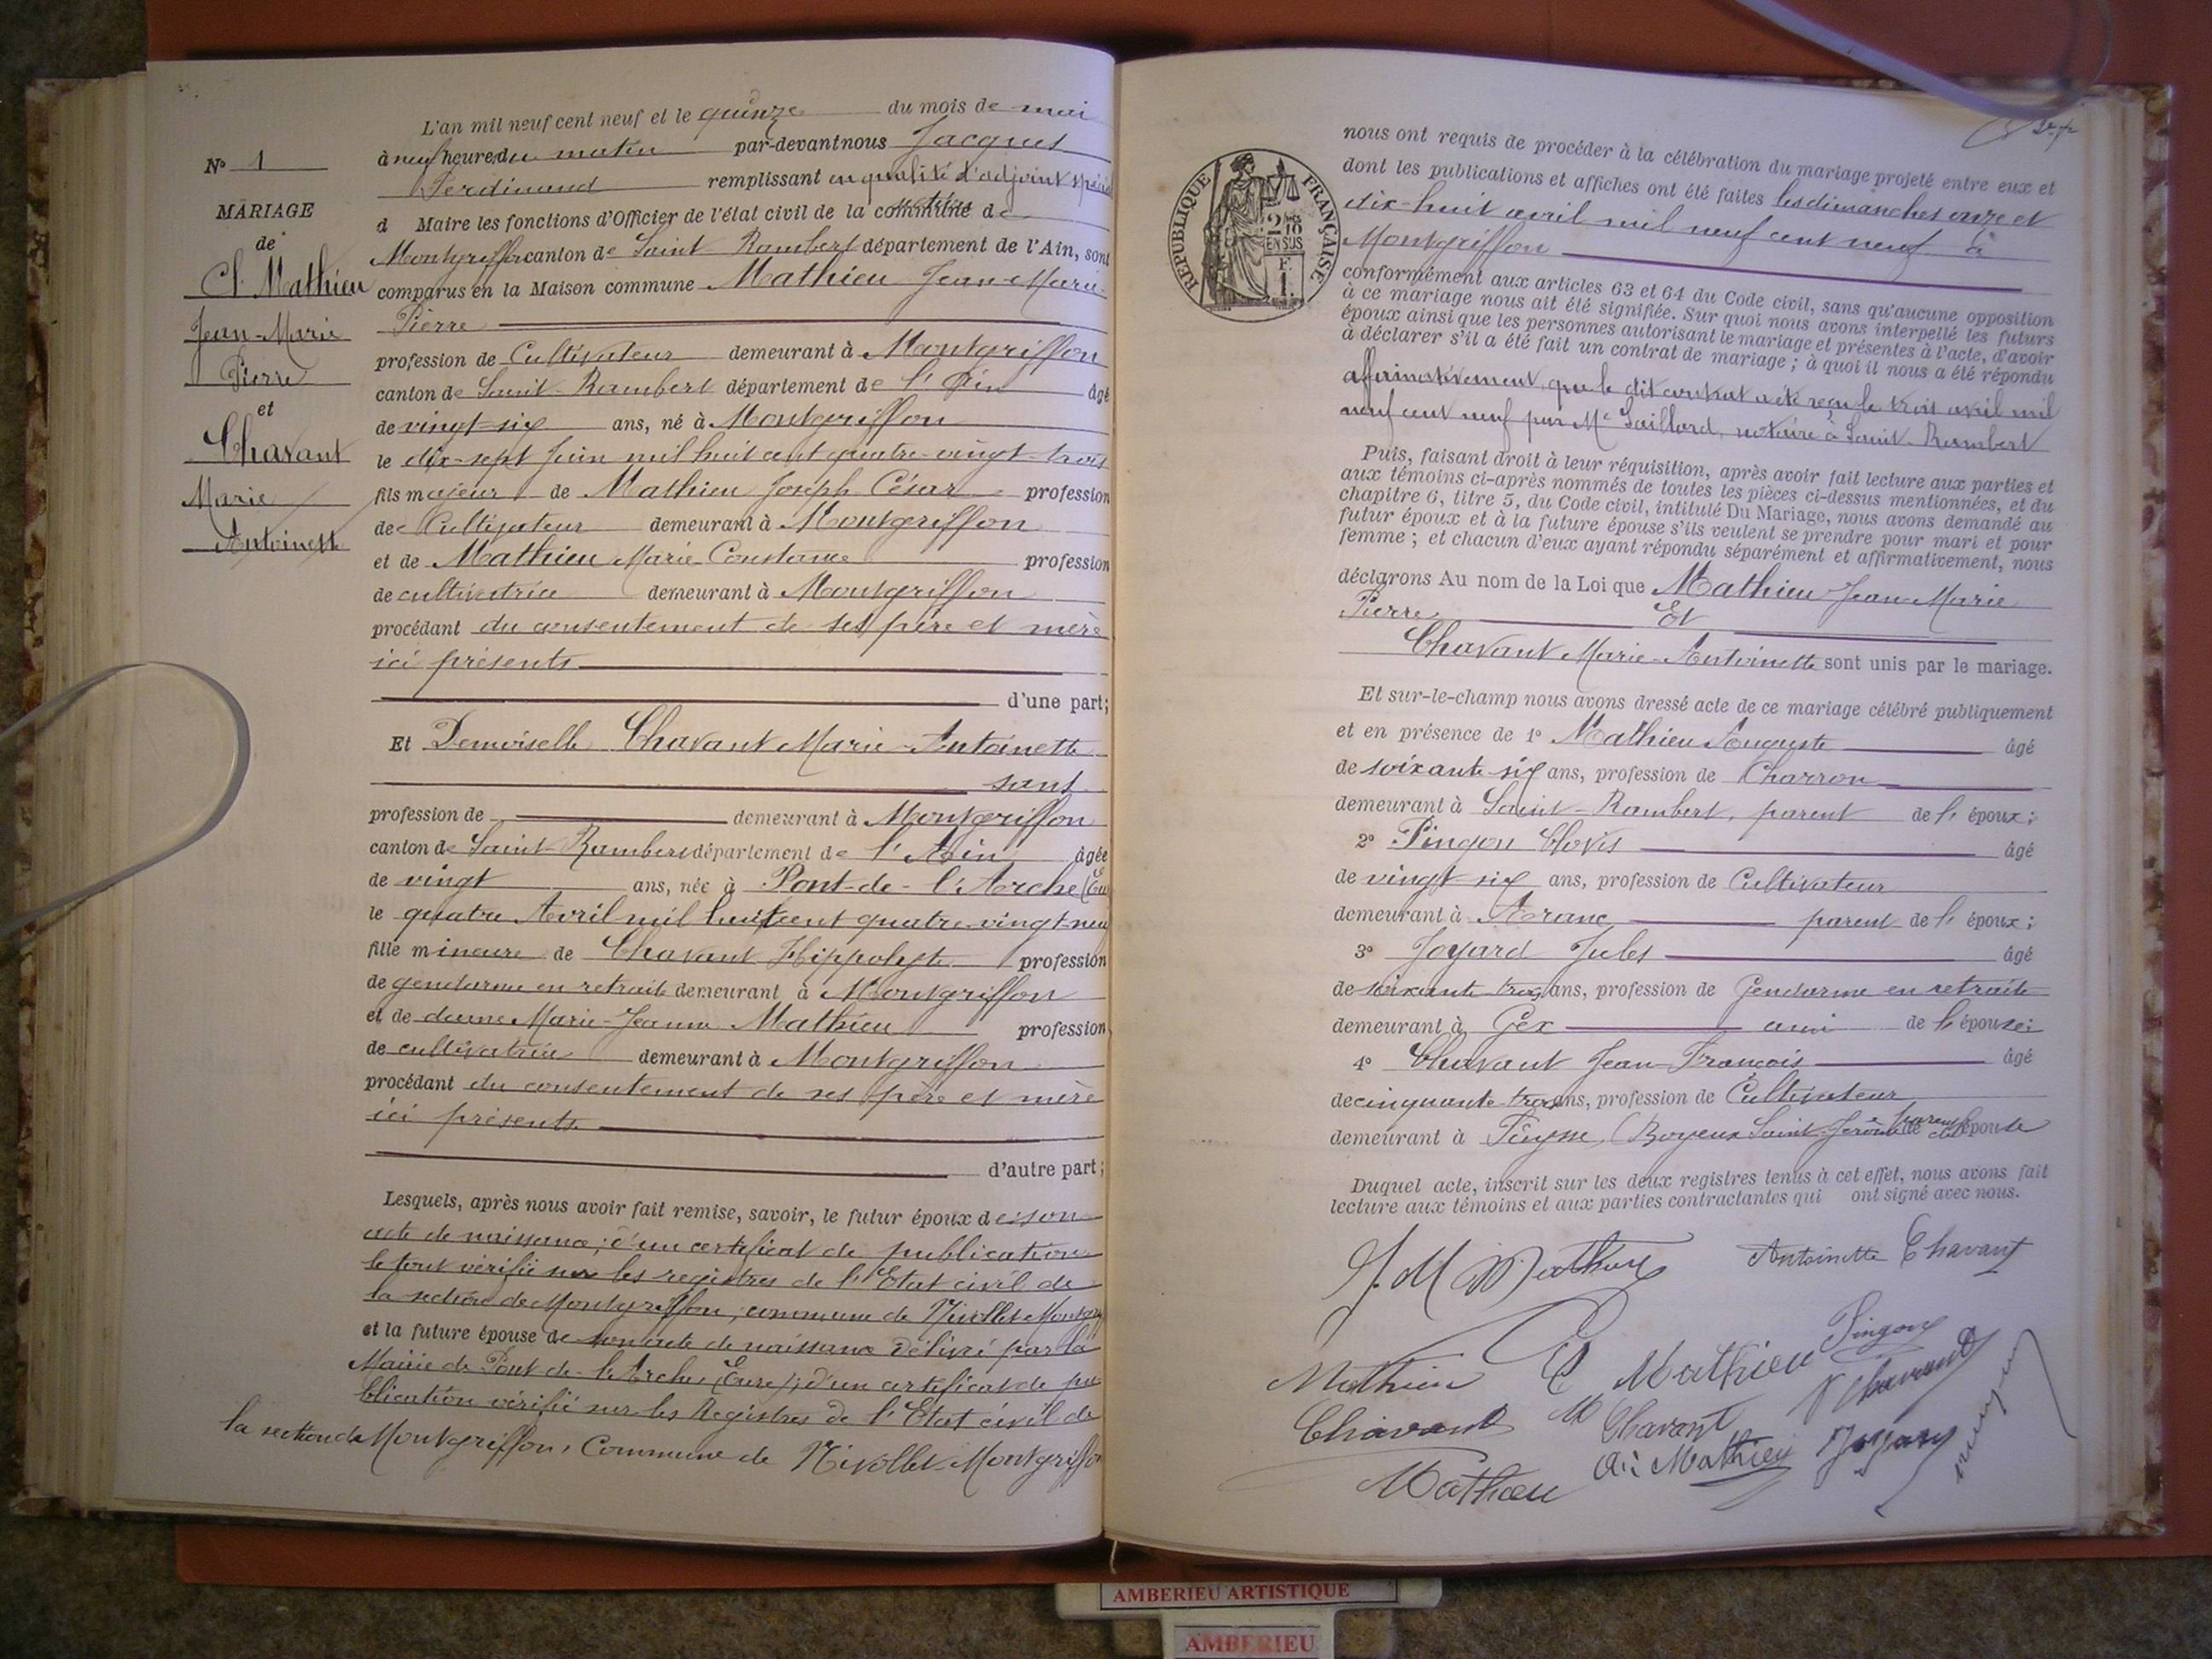 N° 1
MARIAGE
de
Cl. Mathieu
Jean-Marie
Pierre
et
Chavant
Marie
Antoinette
L'an mil neuf cent neuf et le quinze du mois de mai
à neuf heures du matin par-devant nous Jacques
Ferdinand remplissant en qualité d'adjoint spécial
d Maire les fonctions d'Officier de l'état civil de la commune de
Montgriffon canton de Saint Rambert département de l'Ain, sont
comparus en la Maison commune Mathieu Jean-Marie
Pierre
profession de Cultivateur demeurant à Montgriffon
canton de Saint-Rambert département de l'Ain âgé
de vingt-six ans, né à Montgriffon
le dix-sept Juin mil huit cent quatre-vingt-trois
fils majeur de Mathieu Joseph César profession
de Cultivateur demeurant à Montgriffon
et de Mathieu Marie-Constance profession
de cultivatrice demeurant à Montgriffon
procédant du consentement de ses père et mère
ici présents
d'une part;
Et Demoiselle Chavant Marie-Antoinette
sans
profession de demeurant à Montgriffon
canton de Saint-Rambert département de l'Ain âgée
de vingt ans, née à Pont-de-l'Arche (Eu
le quatre Avril mil huit cent quatre-vingt-neuf
fille mineure de Chavant Hippolyte profession
de gendarme en retraite demeurant à Montgriffon
et de dame Marie-Jeanne Mathieu profession
de cultivatrice demeurant à Montgriffon
procédant du consentement de ses père et mère
ici présents
d'autre part;
Lesquels, après nous avoir fait remise, savoir, le futur époux de son
acte de naissance; d'un certificat de publication
le tout vérifié sur les registres de l'Etat civil de
la section de Montgriffon, commune de Nivollet-Montgri
et la future épouse de son acte de naissance délivré par la
Mairie de Pont-de-l'Arche (Eure); d'un certificat de pu
blication vérifié sur les Registres de l'Etat civil de
la section de Montgriffon, Commune de Nivollet-Montgriffon
nous ont requis de procéder à la célébration du mariage projeté entre eux et
dont les publications et affiches ont été faites les dimanches onze et
dix-huit avril mil neuf cent neuf à
Montgriffon
conformément aux articles 63 et 64 du Code civil, sans qu'aucune opposition
à ce mariage nous ait été signifiée. Sur quoi nous avons interpellé les futurs
époux ainsi que les personnes autorisant le mariage et présentes à l'acte, d'avoir
à déclarer s'il a été fait un contrat de mariage; à quoi il nous a été répondu
affirmativement, que le dit contrat a été reçu le trois avril mil
neuf cent neuf par Me Gaillard, notaire à Saint-Rambert
Puis, faisant droit à leur réquisition, après avoir fait lecture aux parties et
aux témoins ci-après nommés de toutes les pièces ci-dessus mentionnées, et du
chapitre 6, titre 5, du Code civil, intitulé Du Mariage, nous avons demandé au
futur époux et à la future épouse s'ils veulent se prendre pour mari et pour
femme; et chacun d'eux ayant répondu séparément et affirmativement, nous
déclarons Au nom de la Loi que Mathieu Jean-Marie
Pierre Et
Chavant Marie-Antoinette sont unis par le mariage.
Et sur-le-champ nous avons dressé acte de ce mariage célébré publiquement
et en présence de 1° Mathieu Auguste âgé
de soixante-six ans, profession de Charron
demeurant à Saint-Rambert, parent de l'époux;
2° Pingon Clovis âgé
de vingt-six ans, profession de Cultivateur
demeurant à Aranc parent de l'époux;
3° Joyard Jules âgé
de soixante-trois ans, profession de Gendarme en retraite
demeurant à Gex ami de l'épouse;
4° Chavant Jean-François âgé
de cinquante-trois ans, profession de Cultivateur
demeurant à (Boyeux Saint-Jérôme) parent de l'épouse
Duquel acte, inscrit sur les deux registres tenus à cet effet, nous avons fait
lecture aux témoins et aux parties contractantes qui ont signé avec nous.
J. M Mathieu Antoinette Chavant
Mathieu C Mathieu Pingon
Chavant M Chavant Chavant
Mathieu Mathieu Joyard
RÉPUBLIQUE FRANÇAISE
2/10
EN SUS
F.
1.
AMBERIEU ARTISTIQUE
AMBERIEU